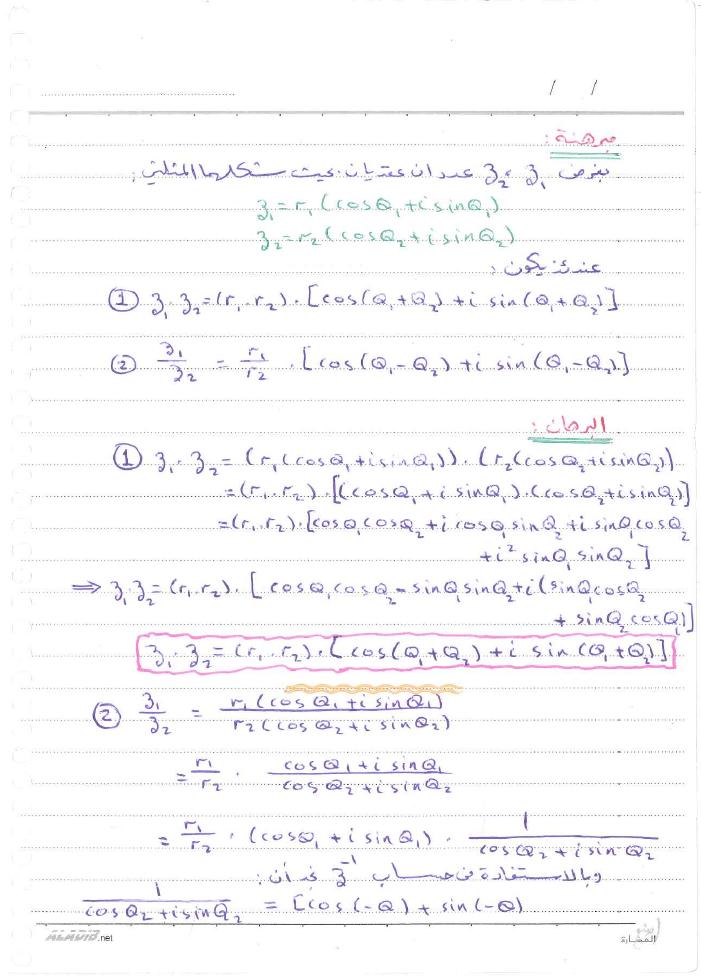 / /
مبرهنة:
بفرض z₁ ، z₂ عددان عقديان بحيث شكلهما المثلثي:
z₁ = r₁ (cos Q₁ + i sin Q₁)
z₂ = r₂ (cos Q₂ + i sin Q₂)
عندئذ يكون:
① z₁ · z₂ = (r₁ . r₂) · [cos(Q₁ + Q₂) + i sin(Q₁ + Q₂)]
② z₁/z₂ = r₁/r₂ · [cos(Q₁ - Q₂) + i sin(Q₁ - Q₂)]
البرهان:
① z₁ · z₂ = (r₁ (cos Q₁ + i sin Q₁)) · (r₂ (cos Q₂ + i sin Q₂))
= (r₁ . r₂) · [(cos Q₁ + i sin Q₁) · (cos Q₂ + i sin Q₂)]
= (r₁ . r₂) · [cos Q₁ cos Q₂ + i cos Q₁ sin Q₂ + i sin Q₁ cos Q₂
+ i² sin Q₁ sin Q₂]
⇒ z₁ · z₂ = (r₁ . r₂) · [cos Q₁ cos Q₂ - sin Q₁ sin Q₂ + i (sin Q₁ cos Q₂
+ sin Q₂ cos Q₁)]
z₁ · z₂ = (r₁ . r₂) · [cos(Q₁ + Q₂) + i sin (Q₁ + Q₂)]
② z₁/z₂ = r₁ (cos Q₁ + i sin Q₁) / r₂ (cos Q₂ + i sin Q₂)
= r₁/r₂ · (cos Q₁ + i sin Q₁) / (cos Q₂ + i sin Q₂)
= r₁/r₂ · (cos Q₁ + i sin Q₁) · 1 / (cos Q₂ + i sin Q₂)
وبالاستفادة من حساب z⁻¹ نجد أن:
1 / (cos Q₂ + i sin Q₂) = [cos (-Q) + sin (-Q)
ALADIB.net